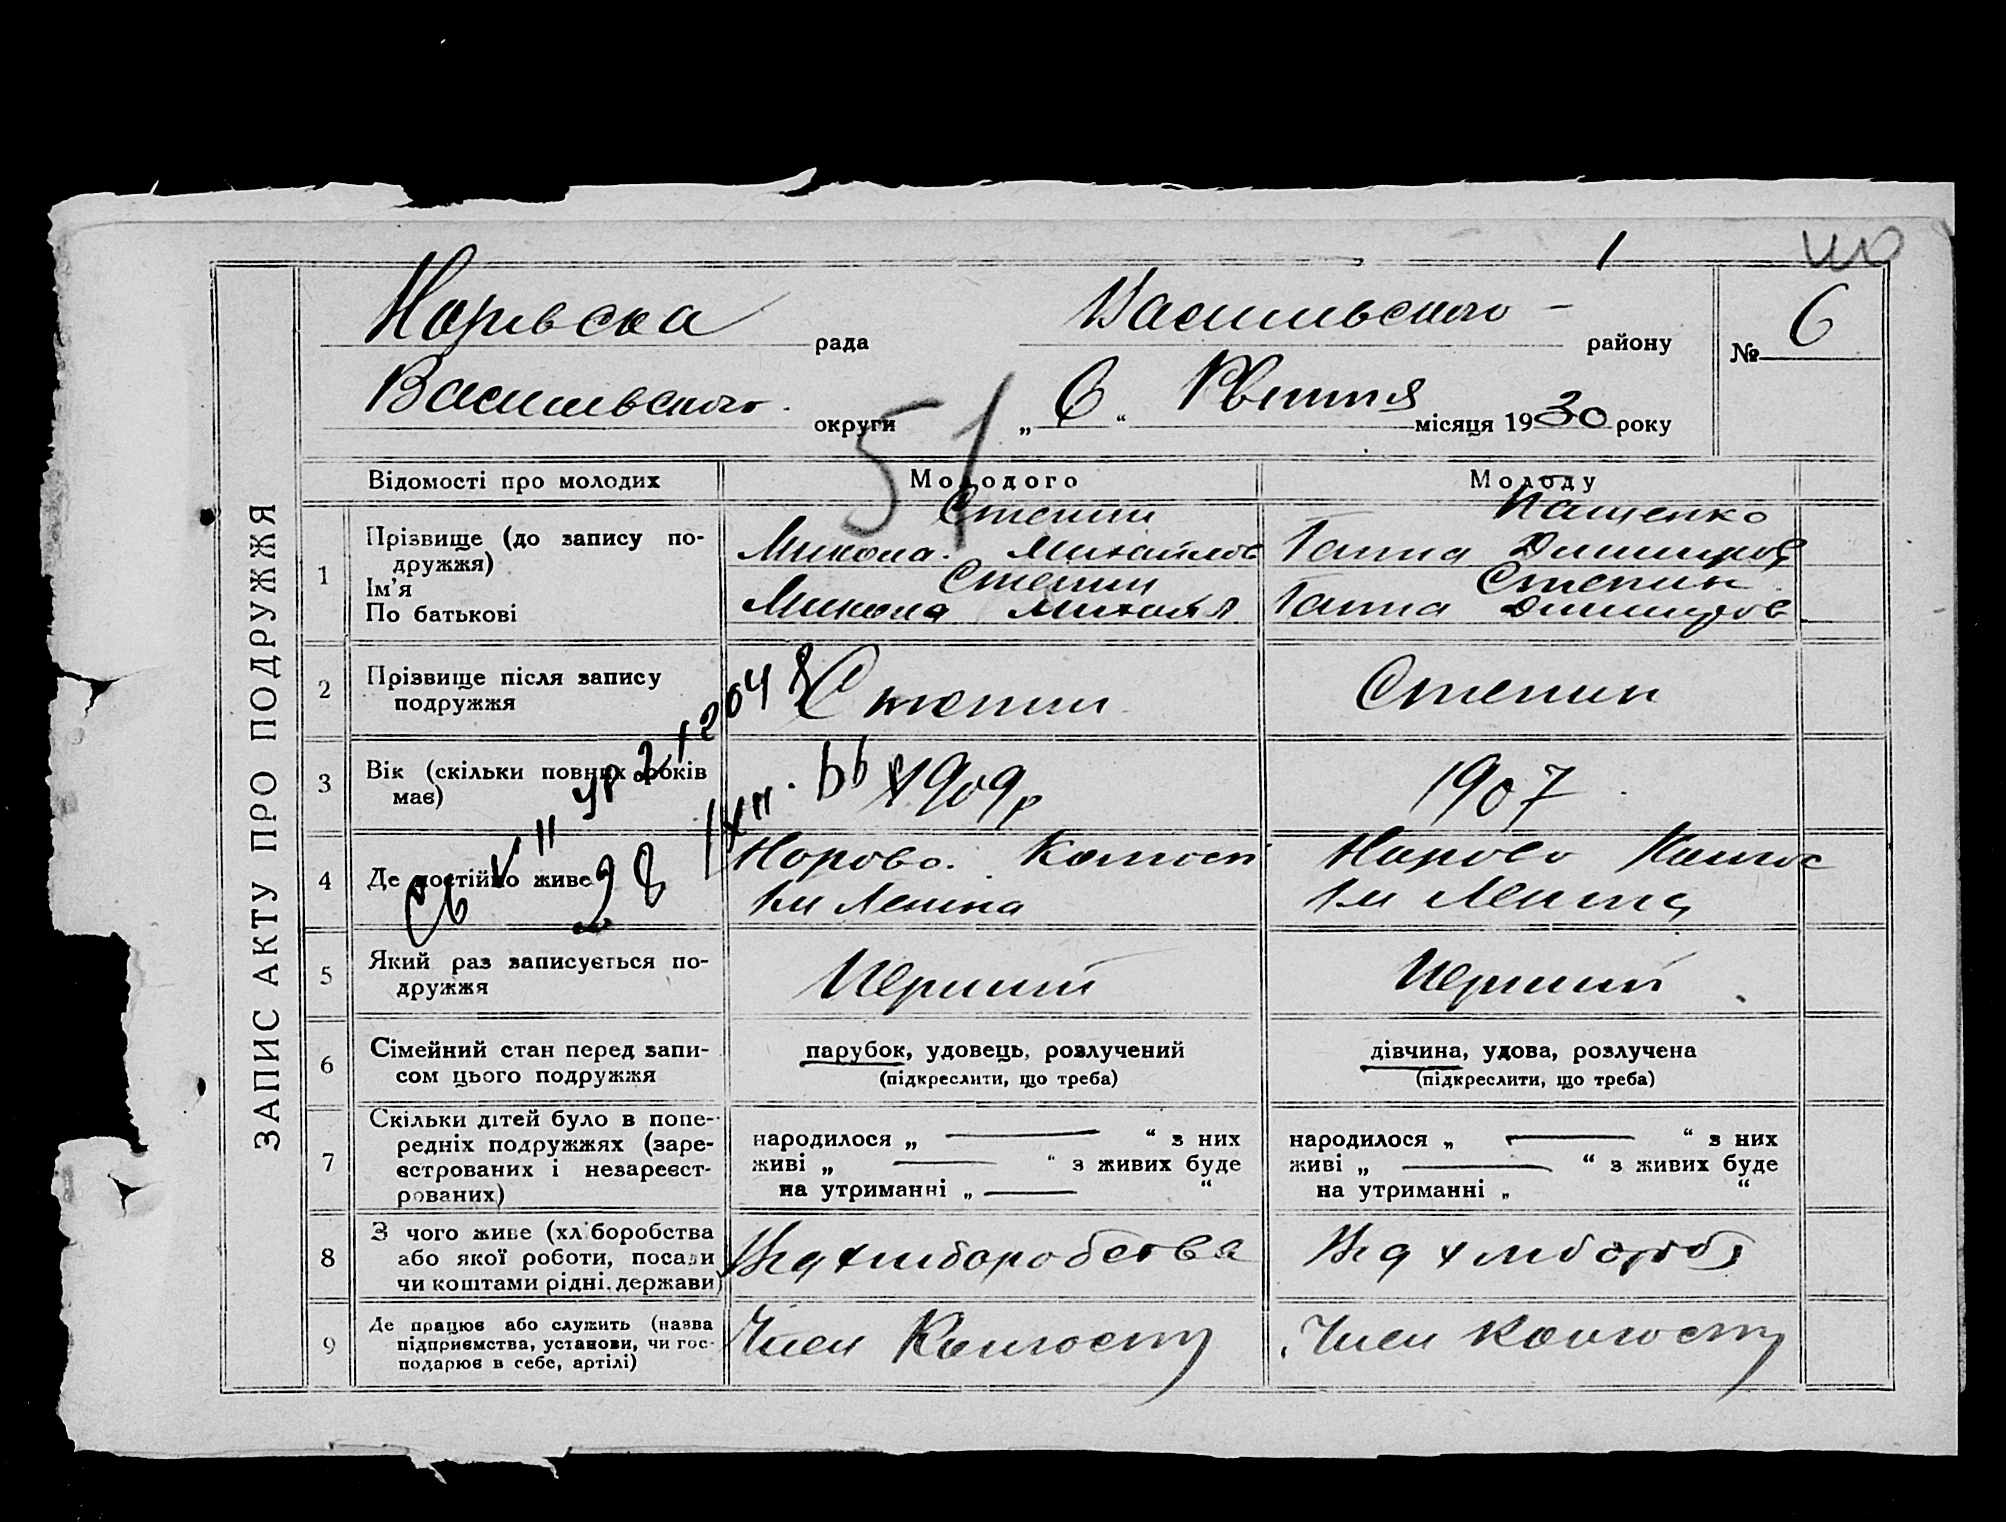 ЗАПИС АКТУ ПРО ПОДРУЖЖЯ
рада
Васильвського району
№ 6
Васильвского округи
„ 6 “ місяця 1930 року
51
Відомості про молодих
Молодого
Молоду
1
Прізвище (до запису по-
дружжя)
Ім'я
По батькові
Степин
Микола. Михайлов
Степин
Микола
Пащенко
Ганна
Степин
Ганна
2
Прізвище після запису
подружжя
Степин
Степин
3
Вік (скільки повних років
має)
1909р
1907
4
Де постійно живе
Норово.
Ім Леніна
Норово
Ім Леніна
5
Який раз записується по-
дружжя
Перший
Перший
6
Сімейний стан перед запи-
сом цього подружжя
парубок, удовець, розлучений
(підкреслити, що треба)
дівчина, удова, розлучена
(підкреслити, що треба)
7
Скільки дітей було в попе-
редніх подружжях (заре-
єстрованих і незареєст-
рованих)
народилося „ “ з них
живі „ “ з живих буде
на утриманні „ “
народилося „ “ з них
живі „ “ з живих буде
на утриманні „ “
8
З чого живе (хліборобства
або якої роботи, посади
чи коштами рідні, держави)
Від хліборобства
Від хлібороб
9
Де працює або служить (назва
підприємства, установи, чи гос-
подарює в себе, артілі)
Член Колгоспу
Член Колгоспу